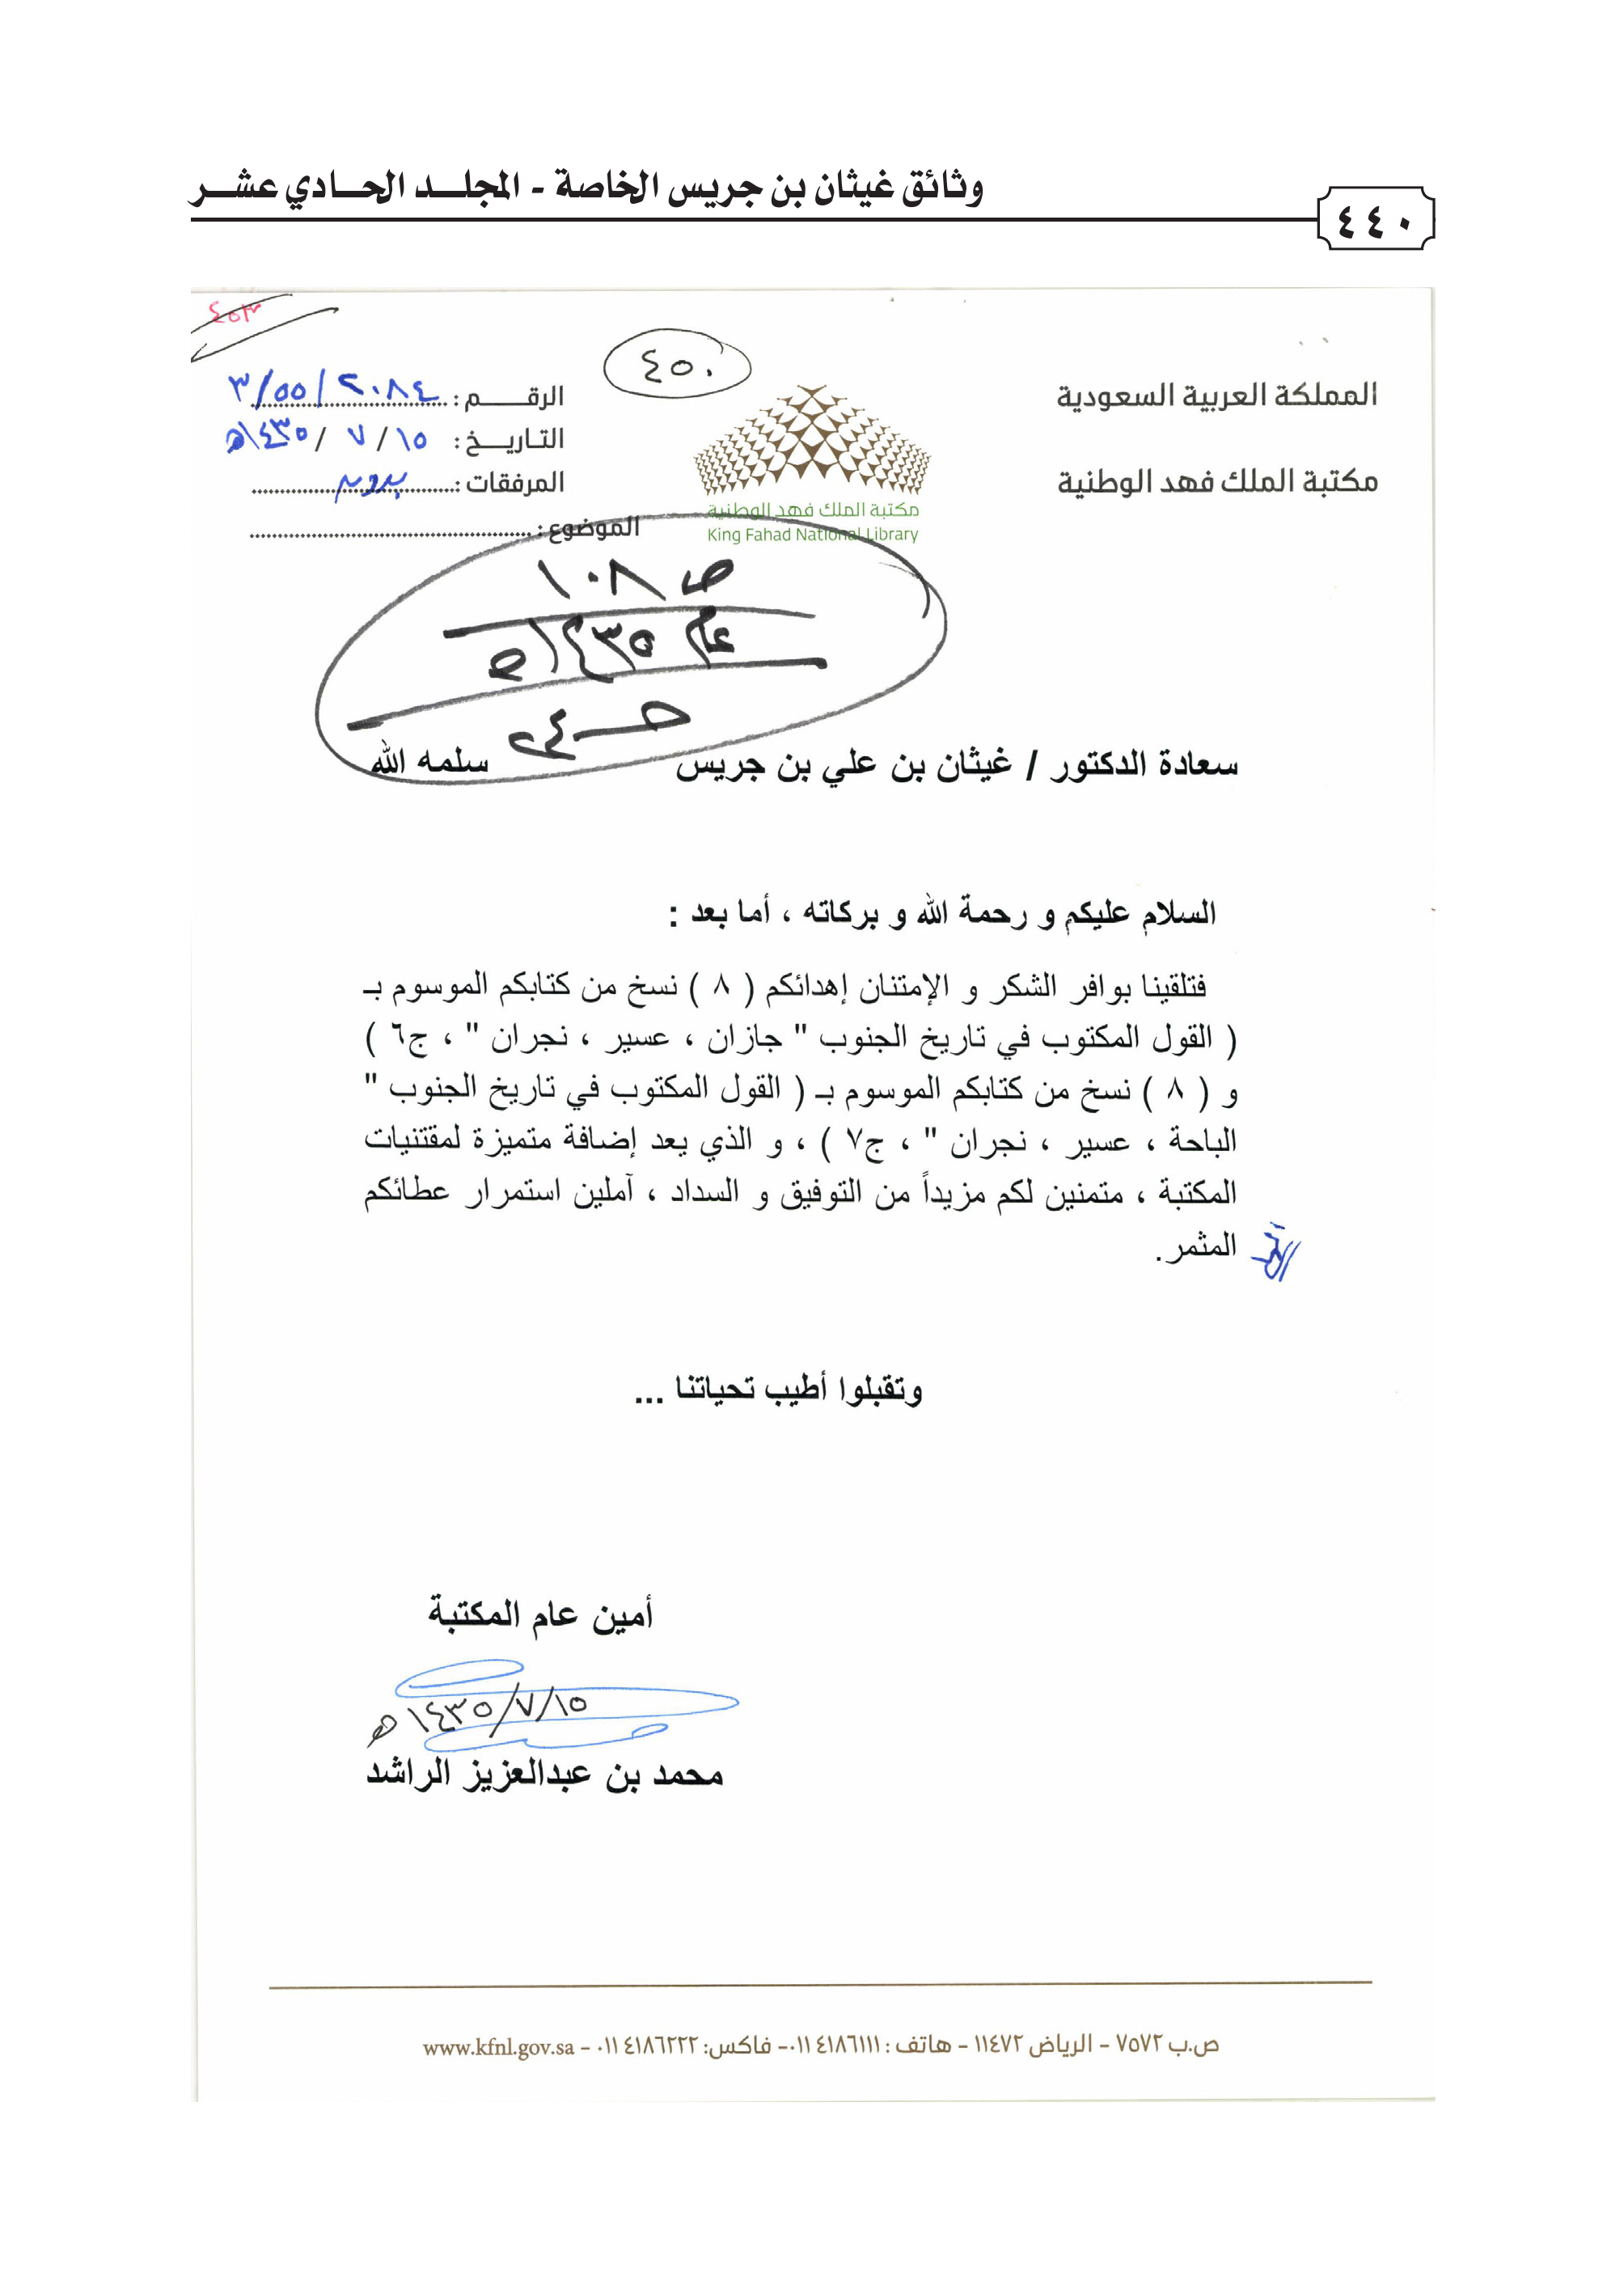 وثائق غيثان بن جريس الخاصة - المجلد الحادي عشر
٤٤٠
٤٥٣
٤٥٠
المملكة العربية السعودية
مكتبة الملك فهد الوطنية
مكتبة الملك فهد الوطنية
King Fahad National Library
الرقم : ٣/٥٥/٢٠٨٤
التاريخ : ١٥/ ٧ / ١٤٣٥هـ
المرفقات : بدون
الموضوع :
ص ١٠٨
عام ١٤٣٥هـ
سعادة الدكتور / غيثان بن علي بن جريس سلمه الله
السلام عليكم و رحمة الله و بركاته ، أما بعد :
فتلقينا بوافر الشكر و الإمتنان إهدائكم ( ٨ ) نسخ من كتابكم الموسوم بـ
( القول المكتوب في تاريخ الجنوب " جازان ، عسير ، نجران " ، ج٦ )
و ( ٨ ) نسخ من كتابكم الموسوم بـ ( القول المكتوب في تاريخ الجنوب "
الباحة ، عسير ، نجران " ، ج٧ ) ، و الذي يعد إضافة متميزة لمقتنيات
المكتبة ، متمنين لكم مزيداً من التوفيق و السداد ، آملين استمرار عطائكم
المثمر.
وتقبلوا أطيب تحياتنا ...
أمين عام المكتبة
١٥/٧/١٤٣٥هـ
محمد بن عبدالعزيز الراشد
ص.ب ٧٥٧٢ - الرياض ١١٤٧٢ - هاتف : ٠١١٤١٨٦١١١ - فاكس: ٠١١٤١٨٦٢٢٢ - www.kfnl.gov.sa